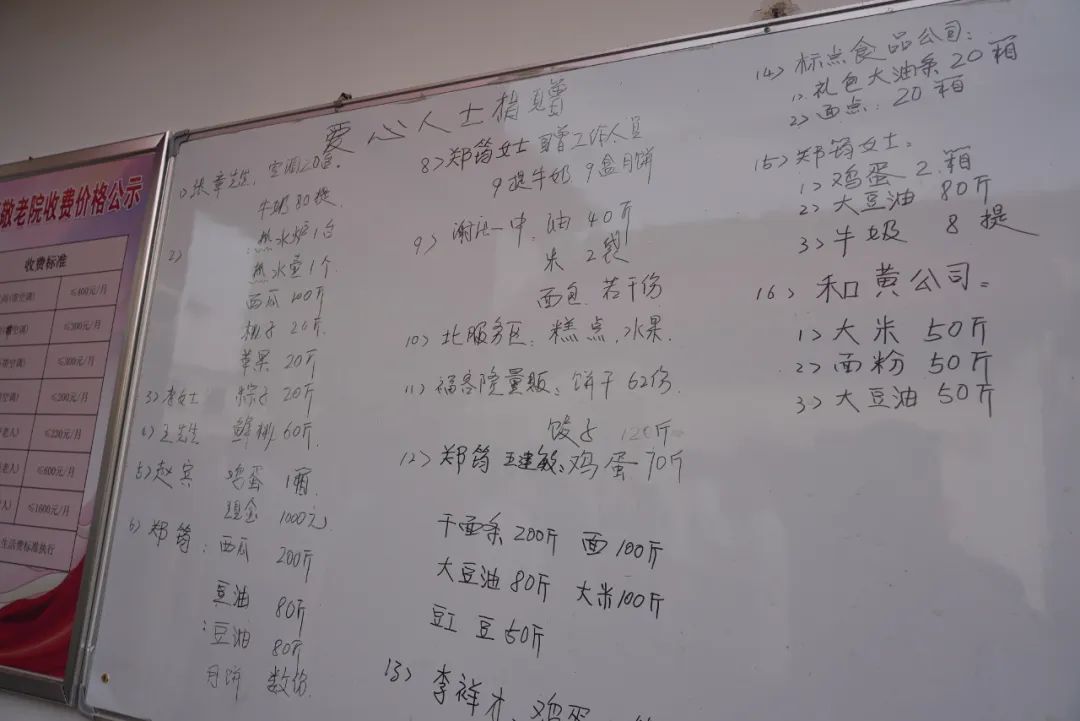 敬老院收费价格公示
收费标准
≤400元/月
≤300元/月
≤300元/月
≤200元/月
≤220元/月
≤600元/月
≤1600元/月
生活费标准执行
爱心人士捐赠
1) 张章先生: 空调20台.
牛奶80提.
2) 热水炉1台
热水壶1个.
西瓜100斤
桃子20斤.
苹果20斤
3) 李女士 粽子20斤
4) 王先生 鲜桃60斤.
5) 赵宾 鸡蛋1箱.
现金1000元
6) 郑筠: 西瓜200斤
豆油80斤
豆油80斤
月饼 数份.
8) 郑筠女士 自赠工作人员
9提牛奶 9盒月饼
9) 谢庄一中: 油40斤
米2袋
面包 若干份
10) 北服务区: 糕点, 水果.
11) 福客隆量贩: 饼干62份.
饺子120斤
12) 郑筠 王建敏: 鸡蛋70斤
干面条200斤 面100斤
大豆油80斤 大米100斤
豇豆50斤
13) 李祥 鸡蛋
14) 标点食品公司:
1) 礼包大油条20箱
2) 面点: 20箱
15) 郑筠女士.
1) 鸡蛋2箱
2) 大豆油80斤
3) 牛奶8提
16) 和黄公司.
1) 大米50斤
2) 面粉50斤
3) 大豆油50斤